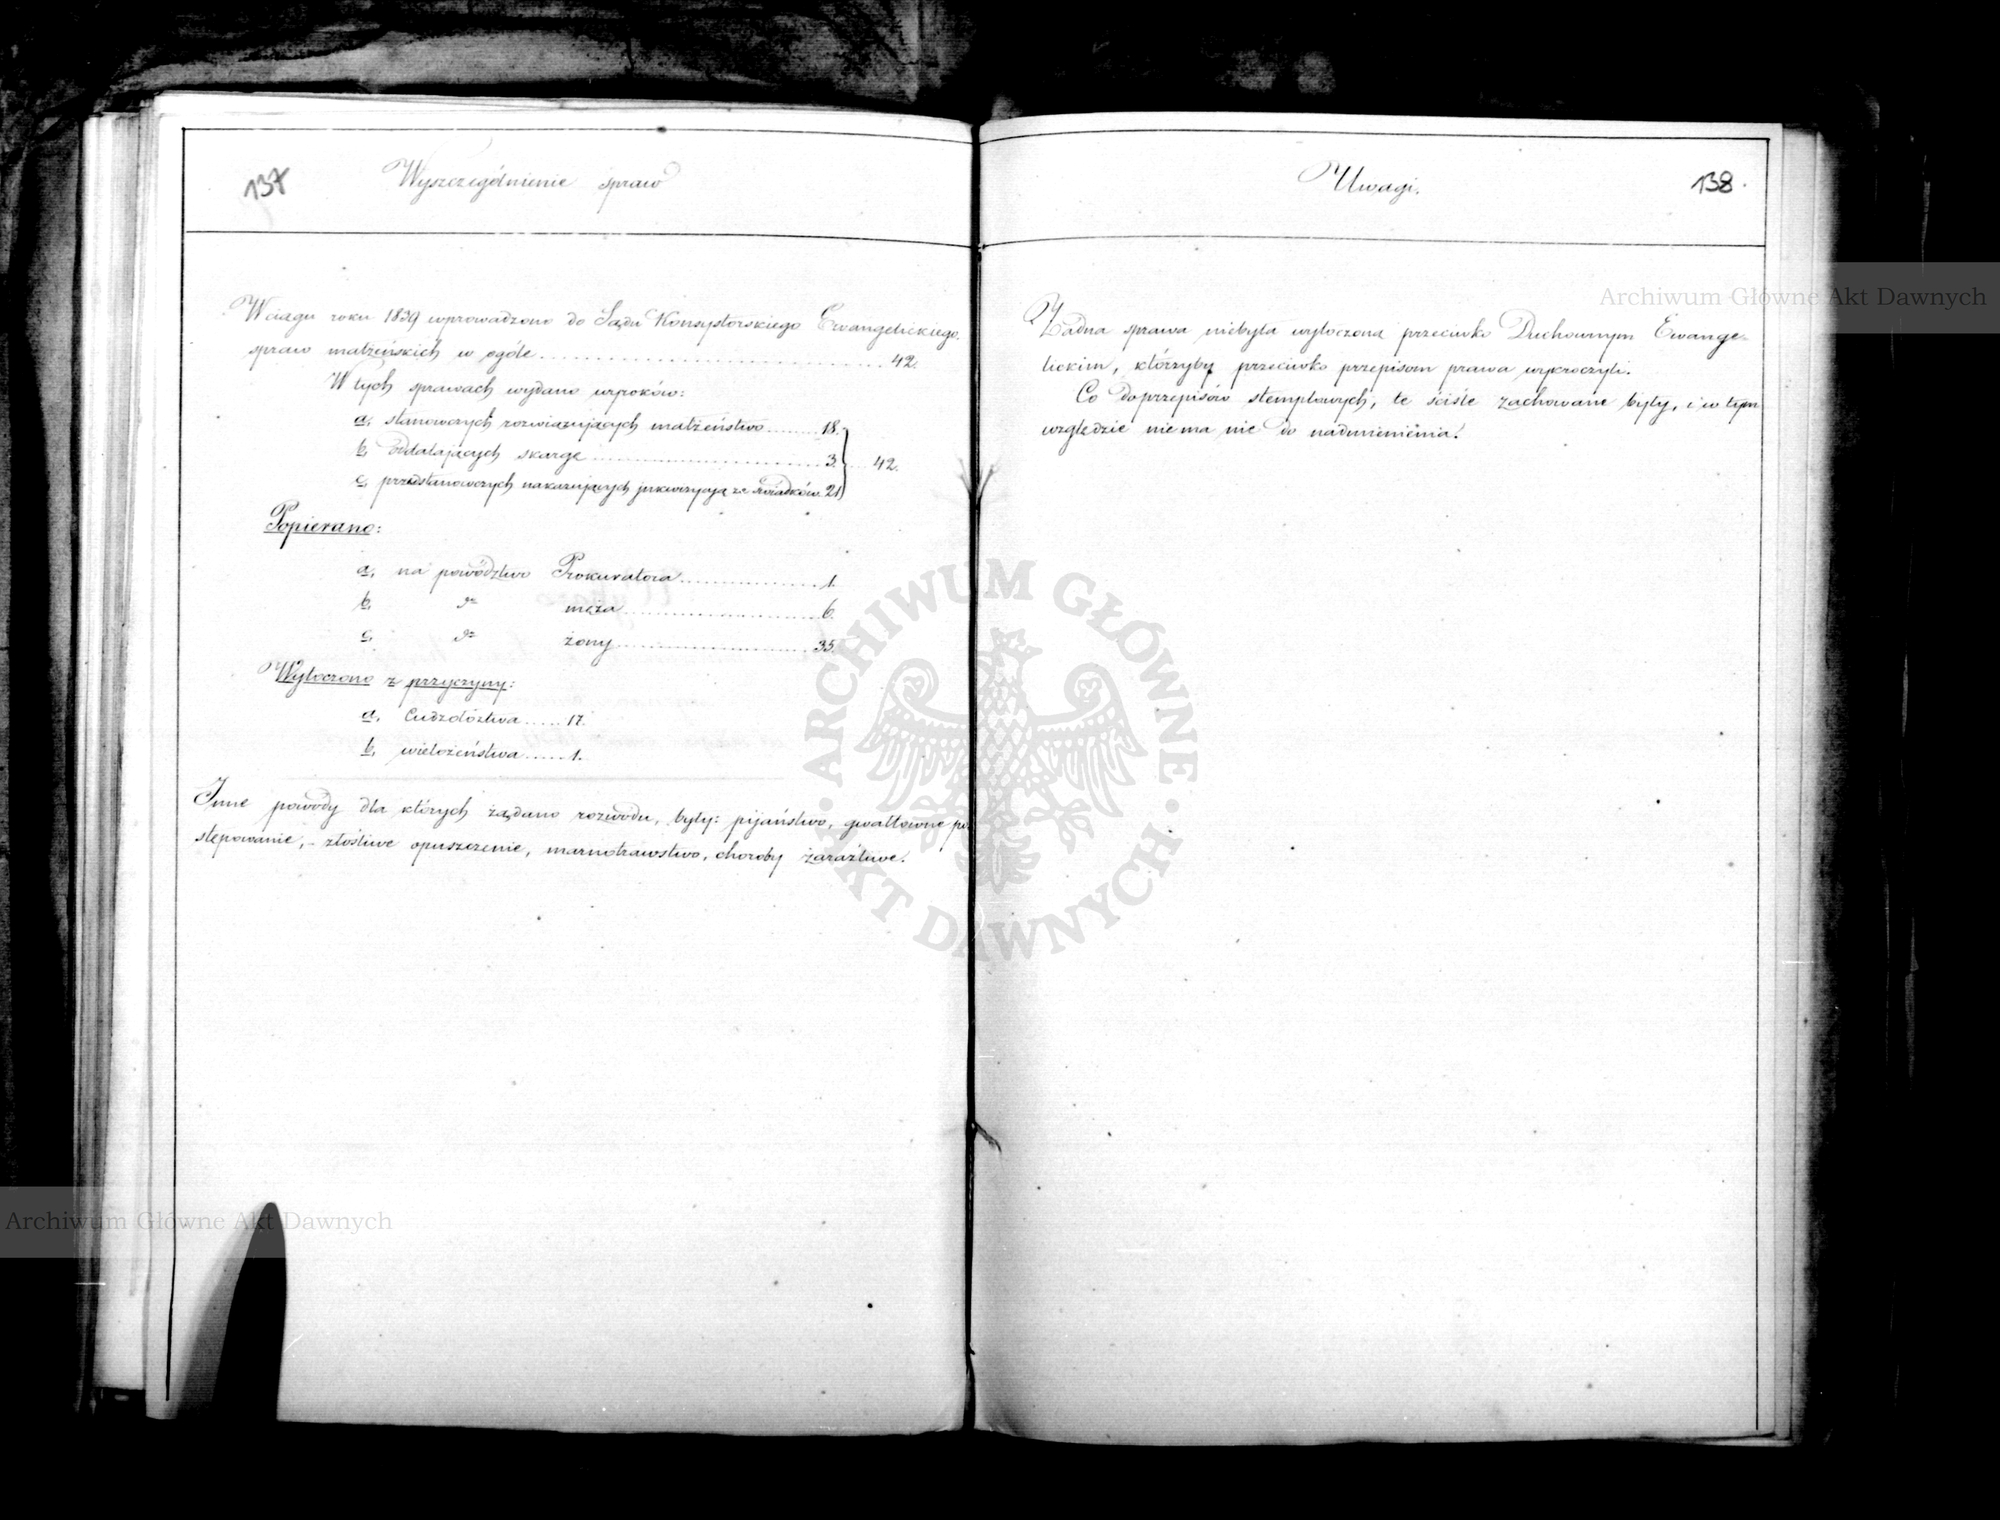 137
Wyszczególnienie spraw
W ciągu roku 1839 wprowadzono do Sądu Konsystorskiego Ewangelickiego
spraw małżeńskich w ogóle 42.
W tych sprawach wydano wyroków:
a, stanowczych rozwiązujących małżeństwo 18.
b, oddalających skargę 3. 42.
c, przedstanowczych nakazujących inkwizycją ze świadków 21
Popierano:
a, na powództwo Prokuratora 1.
b, męża 6.
c, żony 35.
Wytoczono z przyczyny:
a, Cudzołóztwa 17.
b, wielożeństwa 1.
Inne powody dla których żądano rozwodu, były: pijaństwo, gwałtowne po
stępowanie, - złośliwe opuszczenie, marnotrawstwo, choroby zaraźliwe.
Uwagi.
138.
Żadna sprawa niebyła wytoczoną przeciwko Duchownym Ewange-
lickim, którzyby przeciwko przepisom prawa wykroczyli.
Co do przepisów stemplowych, te ściśle zachowane były, i w tym
względzie niema nic do nadmienienia.
Archiwum Główne Akt Dawnych
ARCHIWUM GŁÓWNE AKT DAWNYCH
Archiwum Główne Akt Dawnych